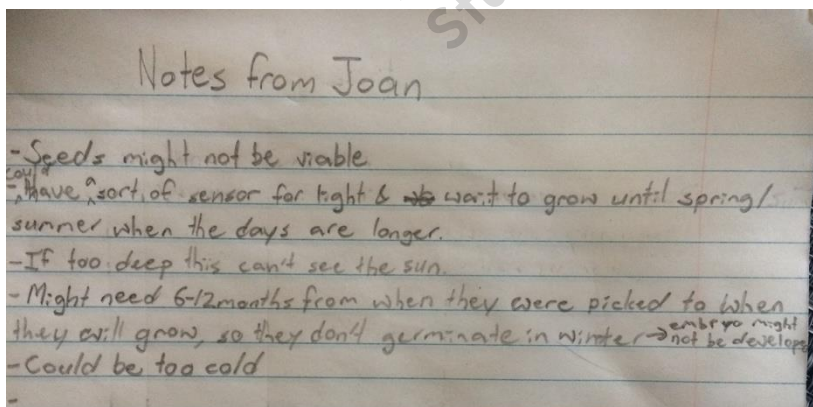 Notes from Joan
- Seeds might not be viable
- could have a sort of sensor for light & wait to grow until spring/
summer when the days are longer.
- If too deep this can't see the sun.
- Might need 6-12 months from when they were picked to when
they will grow, so they don't germinate in winter → embryo might not be develope
- Could be too cold
-